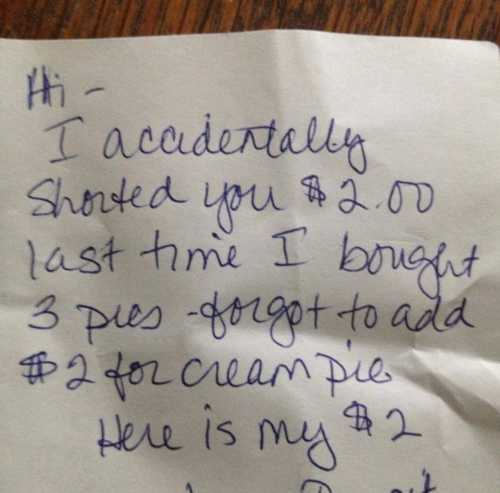 Hi -
I accidentally
Shorted you $2.00
last time I bought
3 pies - forgot to add
$2 for cream pie.
Here is my $2